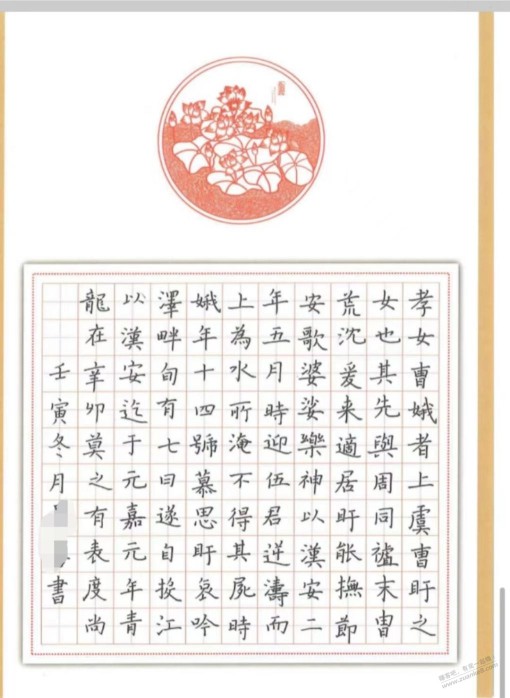 孝女曹娥者上虞曹盱之
女也其先與周同末冑
荒沈爰来適居盱能撫節
安歌婆娑樂神以漢安二
年五月時迎伍君逆濤而
上為水所淹不得其屍時
娥年十四號慕思盱哀吟
澤畔旬有七日遂自投江
以漢安迄于元嘉元年青
龍在辛卯莫之有表度尚
壬寅冬月書